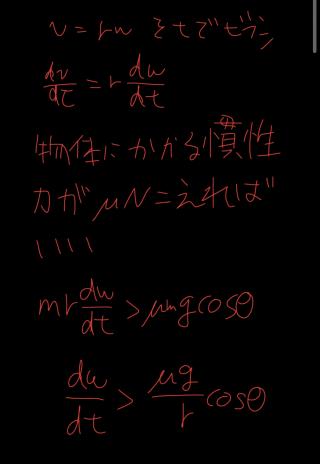 v = rω をtでビブン
dv/dt = r dω/dt
物体にかかる慣性
力がμNこえれば
いいい
mr dω/dt > μmg cosθ
dω/dt > μg/r cosθ